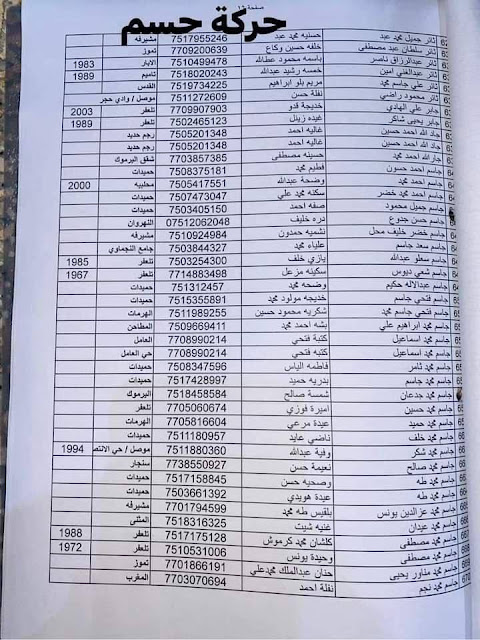 صفحة 15
حركة حسم
ثائر جميل محمد عبد حسنيه محمد عبد 7517955246 مشيرفه
ثائر سلطان عبد مصطفى خلفه حسين وكاع 7709200639 تموز
ثائر عبدالرزاق ناصر باسمه محمود عطاالله 7510499478 الابار 1983
ثائر عبدالغني امين خمسه رشيد عبدالله 7518020243 تاميم 1989
ثائر علي جاسم محمد مريم بلو ابراهيم 7519734225 القدس
ثائر محمود راضي نفلة حسن 7511272609 موصل / وادي حجر
جابر علي الهادي خديجة قدو 7709907903 تلعفر 2003
جابر يحيى شاكر غيده زينل 7502465123 تلعفر 1989
جاد الله احمد حسين غاليه احمد 7505201348 رجم حديد
جاد الله احمد حسين غاليه احمد 7505201348 رجم حديد
جارالله احمد محمد حسينه مصطفى 7703857385 شقق اليرموك
جاسم احمد حسون فطيم محمد 7508375181 حميدات
جاسم احمد محمد وضحة عبدالله 7505417551 محلبيه 2000
جاسم احمد محمد خضر سكنه محمد علي 7507473047 حميدات
جاسم جميل محمود صفه احمد 7503405150 حميدات
جاسم حسن جدوع نده خليف 07512062048 النهروان
جاسم خضر خليف محل نشميه حمدون 7510924984 مشيرفه
جاسم سعد جاسم علياء محمد 7503844327 جامع النجماوي
جاسم سعلو عبدالله يازي خلف 7503254300 تلعفر 1985
جاسم شعي ديوس سكينه مزعل 7714883498 تلعفر 1967
جاسم عبدالاله حكيم وضحه محمد 751312457 حميدات
جاسم فتحي جاسم خديجه مولود محمد 7515355891 حميدات
جاسم فتحي جاسم محمد شكريه محمود حسين 7511989255 الهرمات
جاسم محمد ابراهيم علي بشه احمد محمد 7509669411 المطاحن
جاسم محمد اسماعيل كتبة فتحي 7708990214 العامل
جاسم محمد اسماعيل كتبة فتحي 7708990214 حي العامل
جاسم محمد ثامر فاطمه الياس 7508347596 حميدات
جاسم محمد جاسم بدريه حميد 7517428997 حميدات
جاسم محمد جدعان شمسة صالح 7518458584 اليرموك
جاسم محمد حسين اميرة فوزي 7705060674 تلعفر
جاسم محمد حميد عيدة مرعي 7705816604 الهرمات
جاسم محمد خلف ناضي عايد 7511180957 حميدات
جاسم محمد شكر وفية عبدالله 7511880360 موصل / حي الانتص 1994
جاسم محمد صالح نعيمة حسن 7738550927 سنجار
جاسم محمد طه وضحيه حسن 7517158845 حميدات
جاسم محمد طه عيدة هويدي 7503661392 حميدات
جاسم محمد عزالدين يونس بلقيس طه محمد 7701794599 مشيرفه
جاسم محمد عيدان غنيه شيت 7518316325 المثنى
جاسم محمد مصطفى كلشان محمد كرموش 7517175128 تلعفر 1988
جاسم محمد مصطفى وحيدة يونس 7510531006 تلعفر 1972
جاسم محمد مناور يحيى حنان عبدالملك محمدعلي 7701866191 تموز
جاسم محمد نجم نفلة احمد 7703070694 المغرب